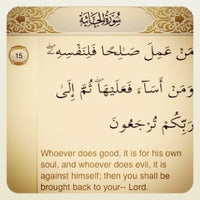 سُورَةُ الجَاثِيَة
15
مَنْ عَمِلَ صَـٰلِحًا فَلِنَفْسِهِۦ ۖ
وَمَنْ أَسَآءَ فَعَلَيْهَا ۖ ثُمَّ إِلَىٰ
رَبِّكُمْ تُرْجَعُونَ
Whoever does good, it is for his own
soul, and whoever does evil, it is
against himself; then you shall be
brought back to your-- Lord.